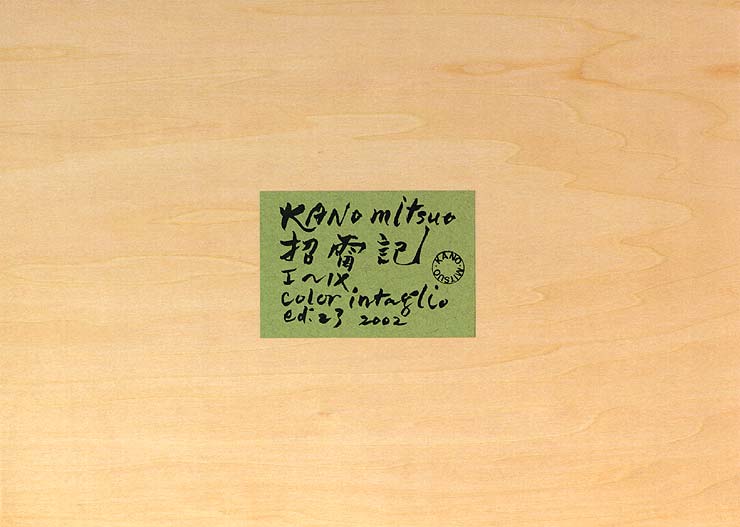 KANo mitsuo
招雷記
I~IX
color intaglio
ed. 23 2002
KANO・MITSUO・